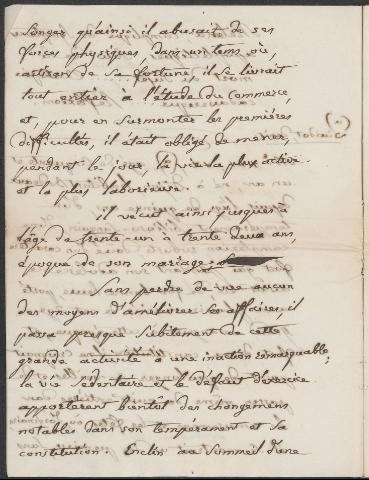 songer qu'ainsi il abusait de ses
forces physiques, dans un tems où,
artisan de sa fortune, il se livrait
tout entier à l'étude du commerce,
et, pour en surmonter les premières
difficultés, il était obligé de mener,
pendant le jour, la vie la plus active
et la plus laborieuse.
il vécut ainsi jusques à
l'âge de trente-un à trente deux ans,
époque de son mariage.
Sans perdre de vue aucun
des moyens d'améliorer ses affaires, il
passa presque subitement de cette
grande activité à une inaction remarquable;
la vie sédentaire et le défaut d'exercice
apportèrent bientôt des changemens
notables dans son tempérament et sa
constitution. Enclin au Sommeil d'une